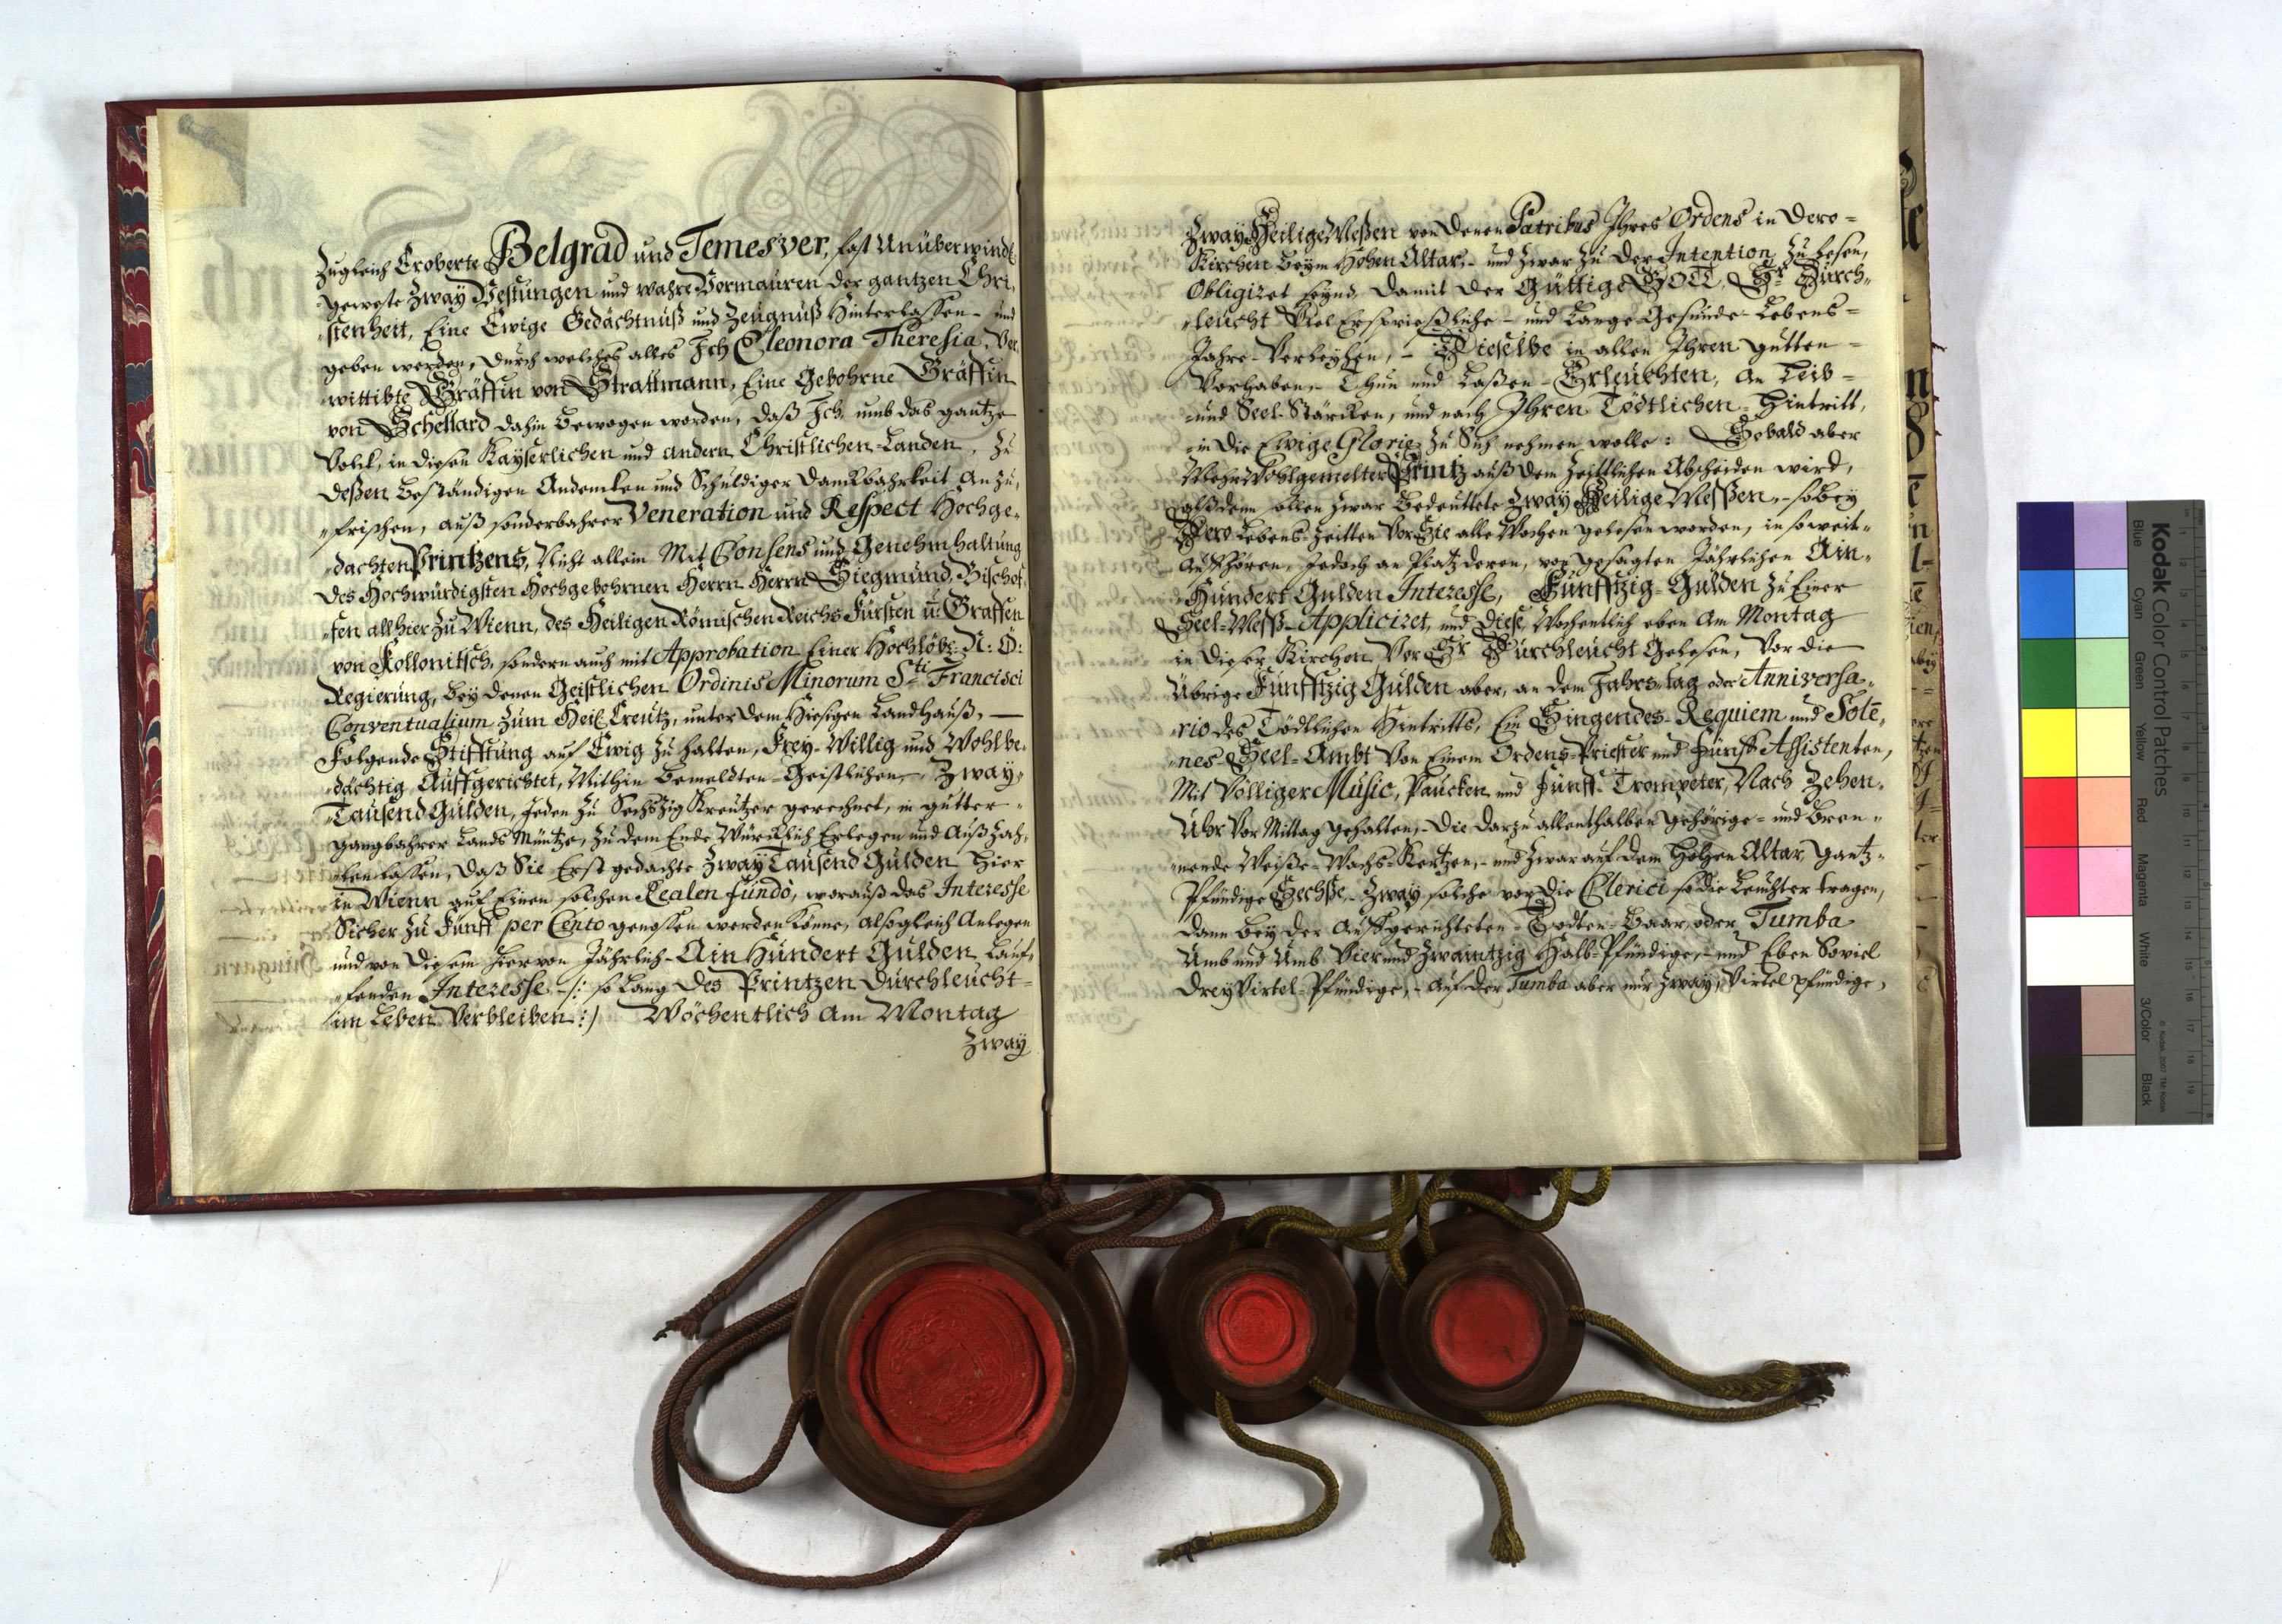 Zugleich Eroberte Belgrad und Temesver, fast Unüberwindl.
geweste Zway Vestungen und wahre Vormauren der gantzen Chri„
„stenheit, Eine Ewige Gedächtnuß und Zeugnuß Hinterlassen- und
geben werden, durch welches alles Ich Eleonora Theresia, Ver„
„wittibte Gräffin von Strattmann, Eine Gebohrne Gräffin
von Schellard dahin bewogen worden, daß Ich umb das gantze
Volck, in diesen Kayserlichen und andern Christlichen-Landen, Zu
deßen beständigen Andencken und Schuldiger Danckbahrkeit An zu„
„frischen, auß sonderbahrer Veneration und Respect Hochge„
„dachten Printzens, Nicht allein Mit Consens und Genehmhaltung
des Hochwürdigsten Hochgebohrnen Herrn Herrn Siegmund, Bischof„
„fen allhier zu Wienn, des Heiligen Römischen Reichs Fürsten u: Graffen
von Kollonitsch, sondern auch mit Approbation Einer Hochlöbl: N: Ö:
Regierung, bey denen Geistlichen Ordinis Minorum Sti Francisci
Conventualium Zum Heil. Creutz, unter dem Hiesigen Landhauß, —
Folgende Stifftung auf Ewig zu halten, Frey-Willig und Wohlbe„
„dächtig Auffgerichtet, Mithin bemeldten-Geistlichen, Zway„
„Tausend Gulden, jeden zu Sechszig Kreutzer gerechnet, in gutter
gangbahrer Lands Müntze, zu dem Ende Würcklich Erlegen und Auß zah„
„len lassen, daß Sie Erst gedachte Zway Tausend Gulden Hier
in Wienn auf Einen solchen Realen fundo, worauß das Interesse
Sicher zu Fünff per Cento genossen werden könne, alsogleich Anlegen
und von diesem hiervon Jährlich Ain Hundert Gulden Lauf„
„fenden Interesse /: so lang des Printzen Durchleucht=
im Leben Verbleiben :/ Wöchentlich Am Montag
Zway
Zway Heilige Meßen von denen Patribus Ihres Ordens in dero=
Kirchen beym Hohen Altar,- und zwar zu der Intention zu lesen,
Obligiret seynd, damit der Güttige GOTT, Sr Durch„
„leucht Viel Ersprießliche- und Lange Gesunde Lebens=
Jahre Verleyhen,- Dieselbe in allen Ihren gutten=
Vorhaben,- Thun und Laßen- Erleuchten, An Leib=
und Seel-Stärcken, und nach Ihren Tödtlichen Hintritt,
in die Ewige Glorie zu Sich nehmen wolle: Sobald aber
Mehr Wohlgemelter Printz auß dem Zeittlichen Abscheiden wird,
alßdann sollen zwar bedeuttete Zway Heilige Messen,- so bey
Dero Lebens-Zeitten Vor Sie alle Wochen gelesen worden, in so weit=
Auffhören, Jedoch an Platz deren, von gesagten Jährlichen Ain„
„Hundert Gulden Interesse, Fünfftzig-Gulden zu Einer
Seel-Mess-Appliciret, und diese, Wochentlich eben Am Montag
in dieser Kirchen Vor Sr Durchleucht Gelesen, Vor die
Übrige Fünfftzig Gulden aber, an dem Jahrs-tag oder Anniversa„
„rio des Tödtlichen Hintritts, Ein Singendes-Requiem und Sole„
„nes Seel-Ambt Von Einem Ordens-Priester und Fünff Assistenten,
Mit Völliger Music, Paucken und Fünff-Trompeter, Nach Zehen„
Uhr Vor Mittag gehalten,- die darzu allenthalben gehörige- und Bren„
„nende Weiße-Wachs-Kertzen,- und zwar auf dem Hohen Altar gantz„
Pfündige Sechse,- Zway solche vor die Clerici so die Leuchter tragen,
dann bey der Auffgerichteten Todten-Baar, oder Tumba
Umb und Umb Vier und Zwaintzig Halb-Pfündige,- und Eben Soviel
drey Virtel-Pfündige,- Auf der Tumba aber nur Zway, Virtel pfündige,
Kodak Color Control Patches
Blue
Cyan
Green
Yellow
Red
Magenta
White
3/Color
Black
© Kodak, 2007 TM: Kodak